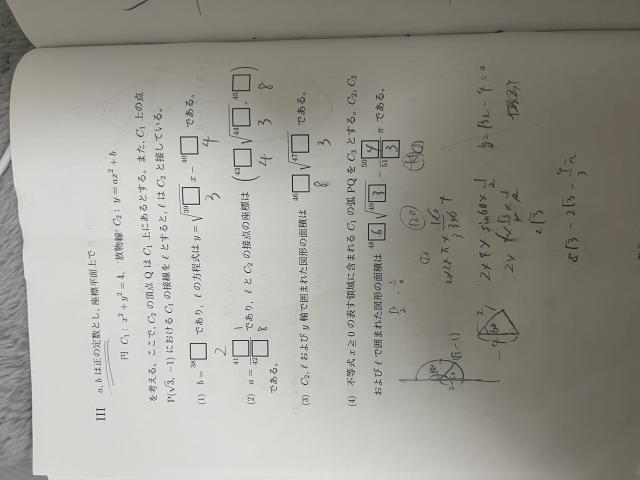 III a, b は正の定数とし，座標平面上で
円 C₁ : x² + y² = 4， 放物線 C₂ : y = ax² + b
を考える。ここで，C₂ の頂点 Q は C₁ 上にあるとする。また，C₁ 上の点
P(√3, −1) における C₁ の接線を ℓ とすると，ℓ は C₂ と接している。
(1) b = 38□ であり，ℓ の方程式は y = √39□ x − 40□ である。
2 3 4
(2) a = 41□/42□ であり，ℓ と C₂ の接点の座標は (43□√44□, 45□)
1 8 4 3 8
である。
(3) C₂, ℓ および y 軸で囲まれた図形の面積は 46□√47□ である。
8 3
(4) 不等式 x ≧ 0 の表す領域に含まれる C₁ の弧 PQ を C₃ とする。C₂, C₃
および ℓ で囲まれた図形の面積は 48 6 √49 3 − 50 4/51 3 π である。
(√3, −1)
120
60
2√3
y = √3x − 4 = 0
8√3 − 2√3 − 4/3 π